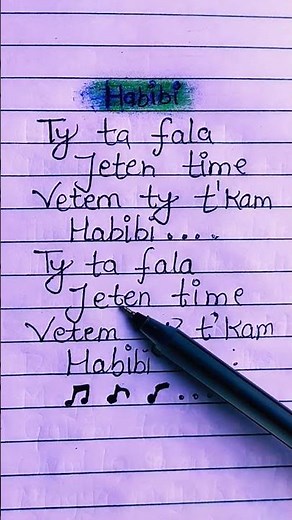 Habibi
Ty ta fala
Jeten time
Vetem ty t'kam
Habibi....
Ty ta fala
Jeten time
Vetem t'kam
Habibi